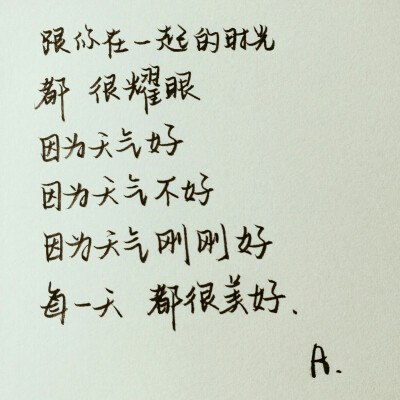 跟你在一起的时光
都 很耀眼
因为天气好
因为天气不好
因为天气刚刚好
每一天 都很美好.
A.